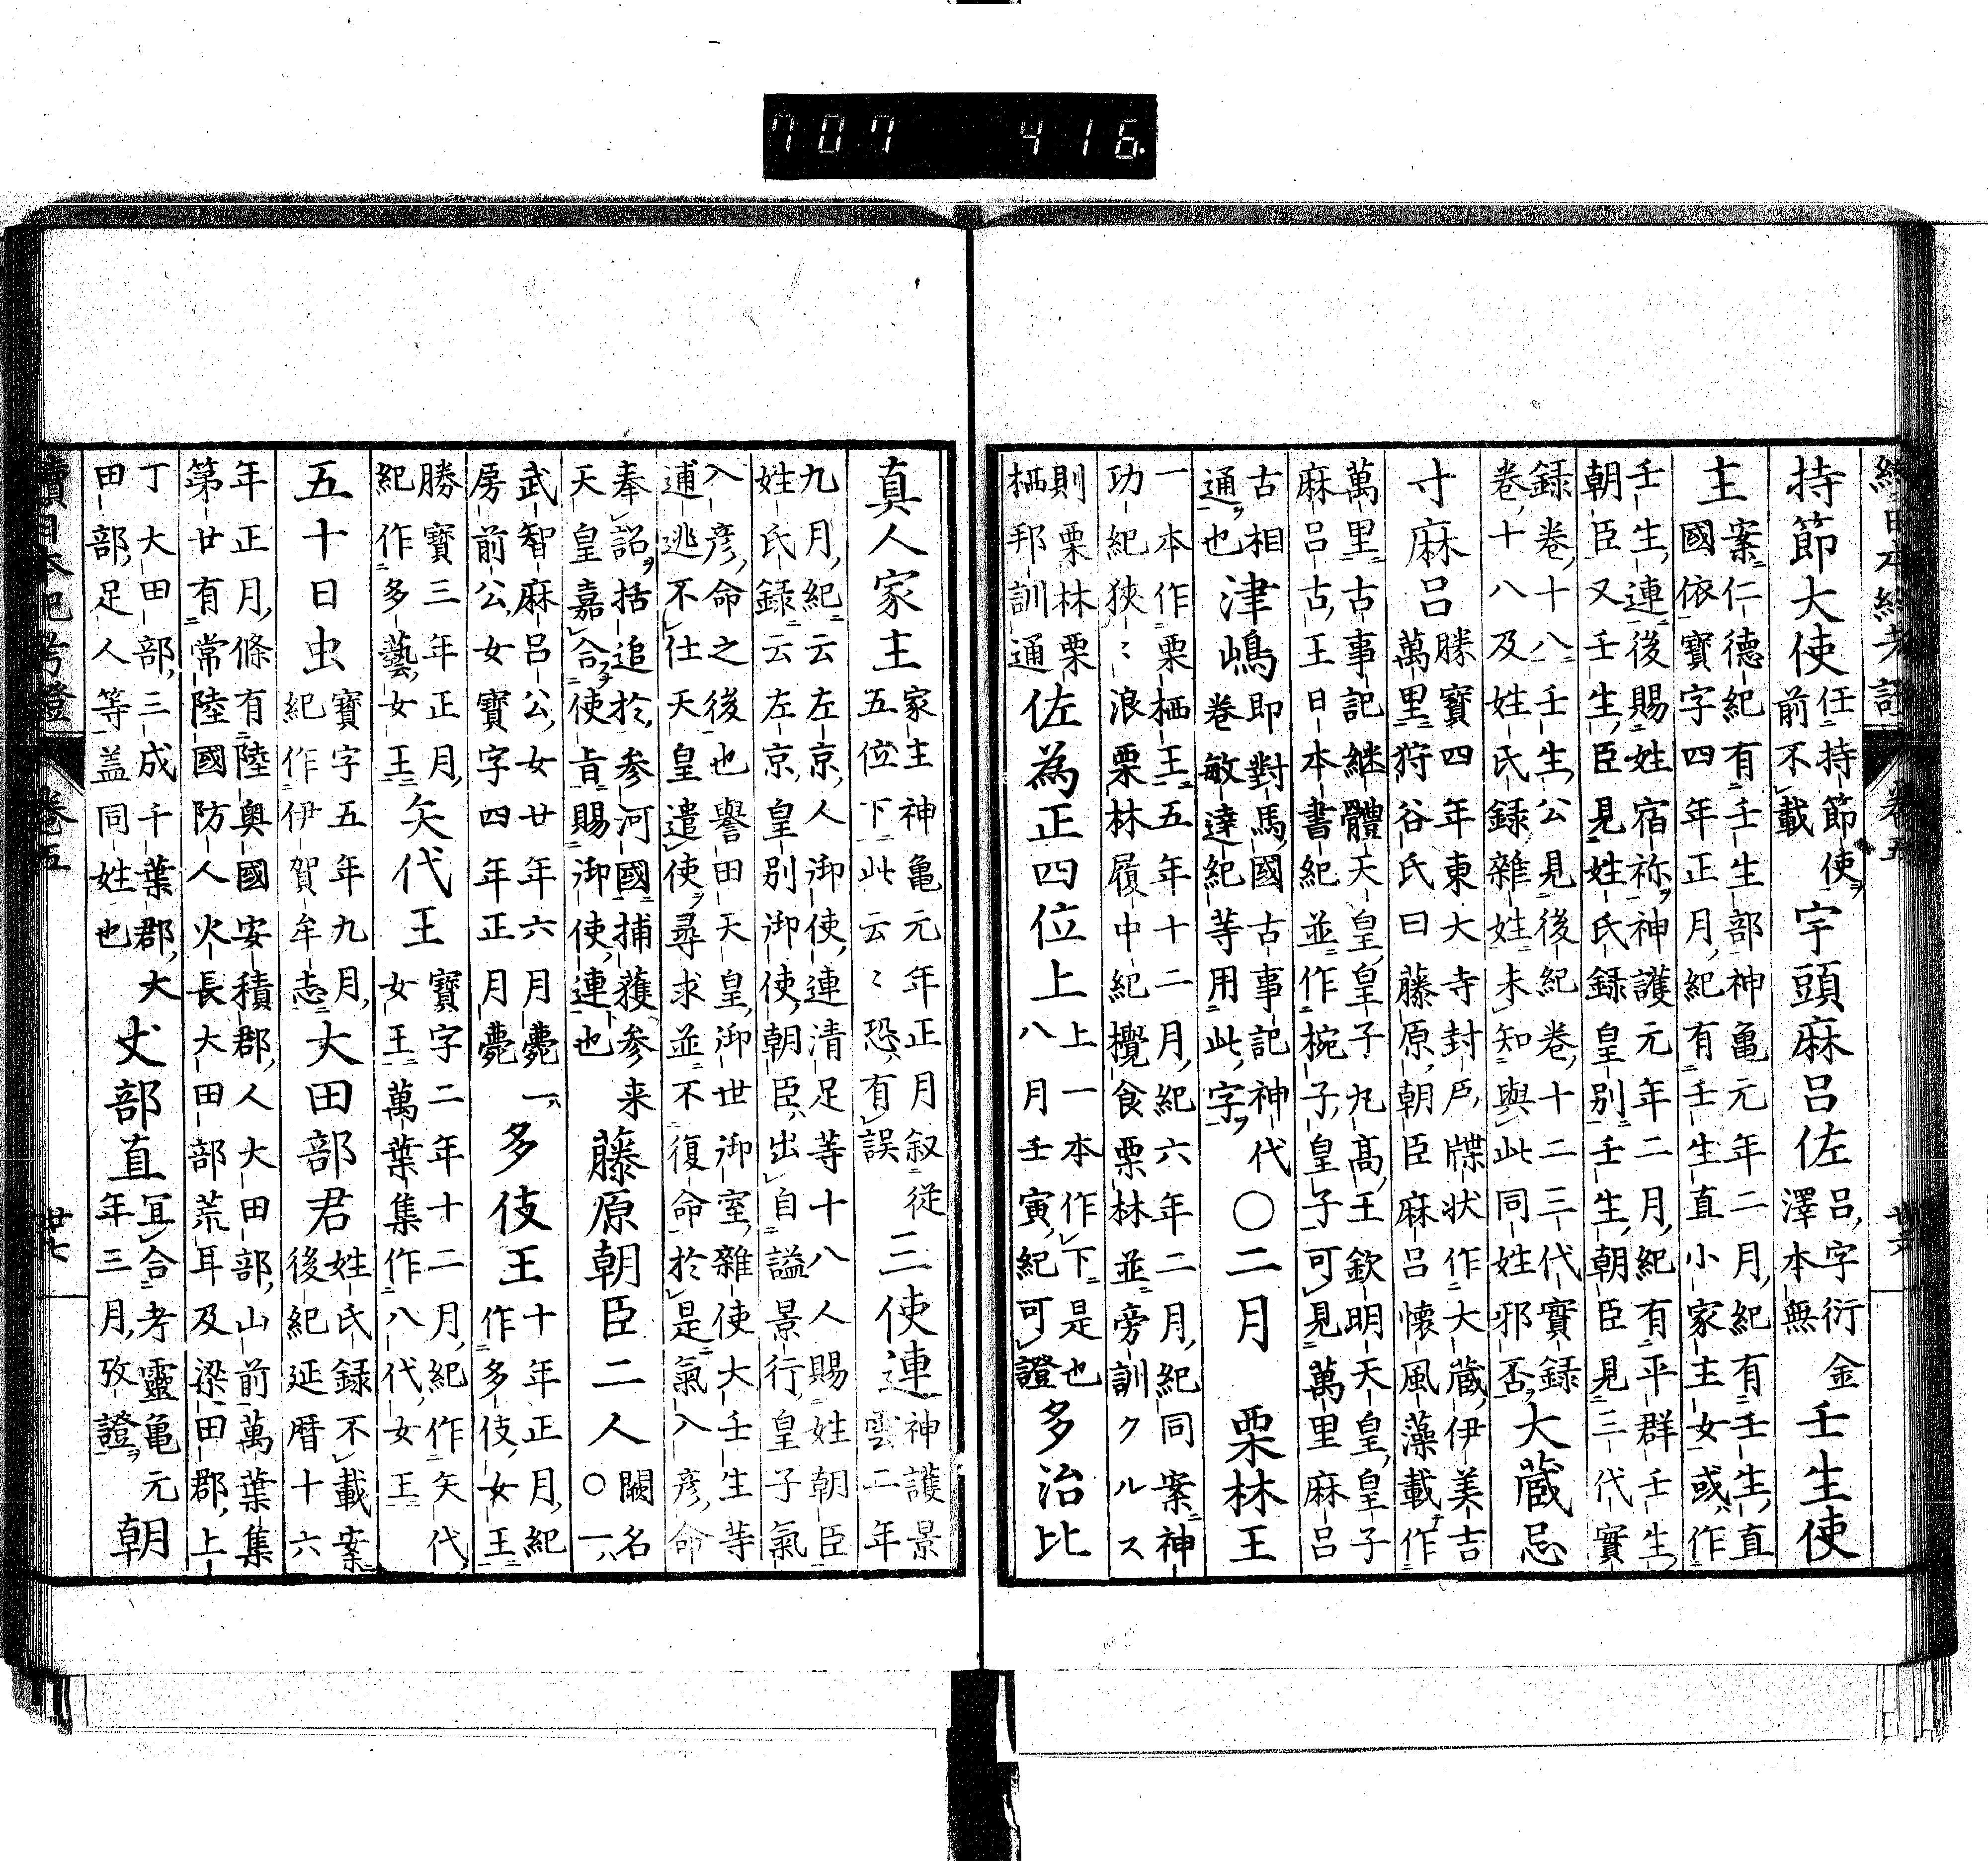 707 416
續日本紀考證 卷五 廿六
持節大使 任持節使ヲ前不載 宇頭麻呂佐 呂字衍金澤本無 壬生使
主 案仁德紀有壬生部神亀元年二月紀有壬生直國依寶字四年正月紀有壬生直小家主女或作
壬生連後賜姓宿祢ヲ神護元年二月紀有平群壬生朝臣又壬生臣見姓氏録皇別壬生朝臣見三代實
録卷十八壬生公見後紀卷十二三代實録卷十八及姓氏録雜姓未知與此同姓邪否 大蔵忌
寸麻呂 勝寶四年東大寺封戸牒状作大蔵伊美吉萬里狩谷氏曰藤原朝臣麻呂懷風藻載作
萬里古事記継體天皇皇子丸高王欽明天皇皇子麻呂古王日本書紀並作椀子皇子可見萬里麻呂
古相通ヲ也 津嶋 即對馬國古事記神代卷敏達紀等用此字ヲ 〇二月 栗林王
一本作栗栖王五年十二月紀六年二月紀同案神功紀狹〻浪栗林履中紀攪食栗林並旁訓クルス
則栗林栗栖邦訓通 佐為正四位上 上一本作下是也八月壬寅紀可證 多治比
真人家主 家主神亀元年正月叙従五位下此云〻恐有誤 三使連 神護景雲二年
九月紀云左京人御使連清足等十八人賜姓朝臣姓氏録云左京皇別御使朝臣出自謚景行皇子氣
入彦命之後也譽田天皇御世御室雜使大壬生等逋逃不仕天皇遣使ヲ尋求並不復命於是氣入彦命
奉詔ヲ括追於参河國捕獲参来天皇嘉合ヲ使旨賜御使連也 藤原朝臣二人 闕名〇一ハ
武智麻呂公女廿年六月薨一ハ房前公女寶字四年正月薨 多伎王 十年正月紀作多伎女王
勝寶三年正月紀作多藝女王 矢代王 寶字二年十二月紀作矢代女王萬葉集作八代女王
五十日虫 寶字五年九月紀作伊賀牟志 大田部君 姓氏録不載案後紀延暦十六
年正月條有陸奥國安積郡人大田部山前萬葉集第廿有常陸國防人火長大田部荒耳及梁田郡上
丁大田部三成千葉郡大田部足人等盖同姓也 丈部直 冝合考靈亀元年三月攷證ヲ 朝
續日本紀考證 卷五 廿七